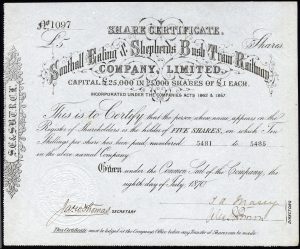 SHARE CERTIFICATE.
No 1097
£5
Shares.
Southall Ealing & Shepherds Bush Tram Railway
COMPANY, LIMITED.
CAPITAL £25,000 IN 25,000 SHARES OF £1 EACH.
INCORPORATED UNDER THE COMPANIES ACTS 1862 & 1867
This is to Certify that the person whose name appears in the
Register of Shareholders is the holder of FIVE SHARES, on which Ten
Shillings per share has been paid numbered 5481 to 5485
in the above named Company
Given under the Common Seal of the Company, the
eighth day of July, 1870
SECRETARY
DIRECTORS
This Certificate must be lodged at the Company's Office before any Transfer of Shares can be made.